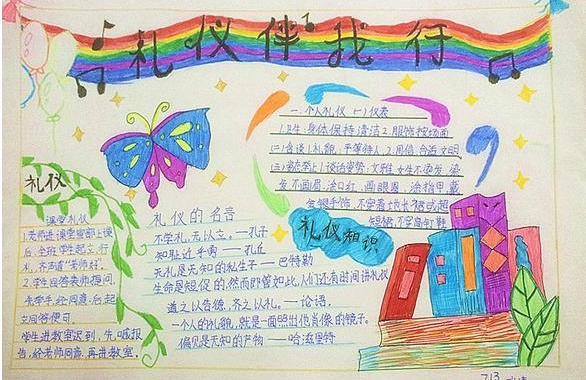 礼仪伴我行
一.个人礼仪 (一)仪表
1.卫生:身体保持清洁2.服饰按场面
(二)言谈1.礼貌,平等待人,2.用信,合语文明
文雅,女生不染发,染
发不画眉,涂口红,画眼圈,涂指甲,戴
金银手饰
短裙,不穿高钉鞋
礼仪知识
礼仪
课堂礼仪
1.老师进课堂宣部上课
后,全班学生起立,行
礼,齐声道"老师好"。
2.学生回答老师提问,
先举手,经同意后起
立回答便可。
学生进教室迟到,先喊报
告,经老师同意,再进教室。
礼仪的名言
不学礼,无以立。——孔子
知耻近乎勇——孔丘
无礼是无知的私生子——巴特勒
生命是短促的,然而即管如此,人们还有时间讲礼仪
道之以告德,齐之以礼。——论语。
一个人的礼貌,就是一面照出他肖像的镜子。
偏见是无知的产物——哈滋里特
713